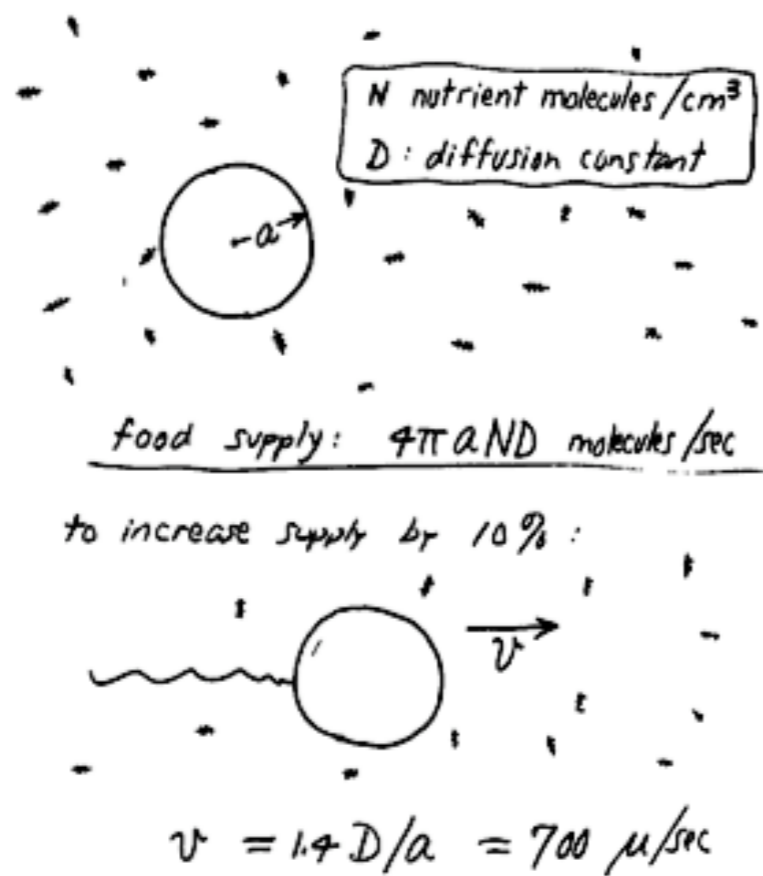 N nutrient molecules/cm³
D: diffusion constant
a
food supply: 4πaND molecules/sec
to increase supply by 10%:
v
v = 1.4 D/a = 700 μ/sec